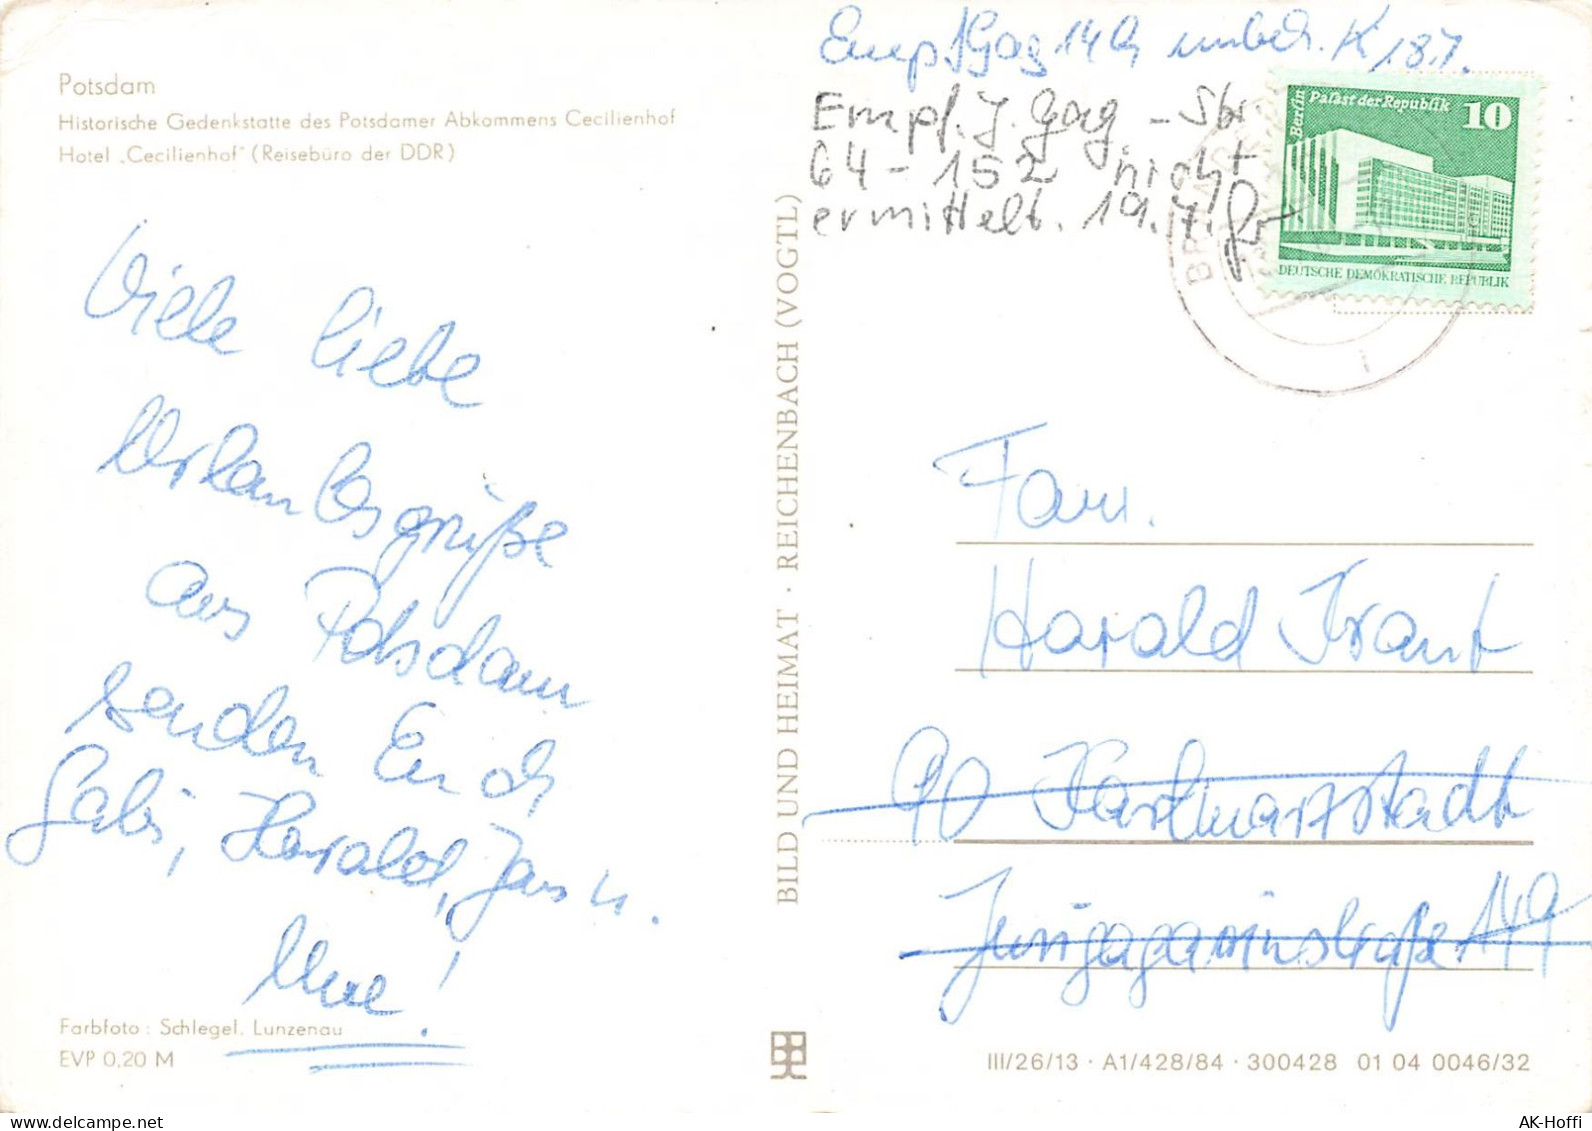 Potsdam
Historische Gedenkstatte des Potsdamer Abkommens Cecilienhof
Hotel „Cecilienhof" (Reisebüro der DDR)
Viele liebe
Urlaubsgrüße
aus Potsdam
senden Euch
Gabi, Harald, Jens u.
Uwe!
Farbfoto: Schlegel, Lunzenau
EVP 0,20 M
BILD UND HEIMAT · REICHENBACH (VOGTL)
Empf JGag 149 unbek. K 18.7.
Empf. J. Gag. - Str
64 - 152 nicht
ermittelt. 19.7.
Berlin
Palast der Republik
10
DEUTSCHE DEMOKRATISCHE REPUBLIK
Fam.
Harald Krant
90 Karlmarxstadt
Jurijgagarinstraße 149
III/26/13 · A1/428/84 · 300428 01 04 0046/32
AK-Hoffi